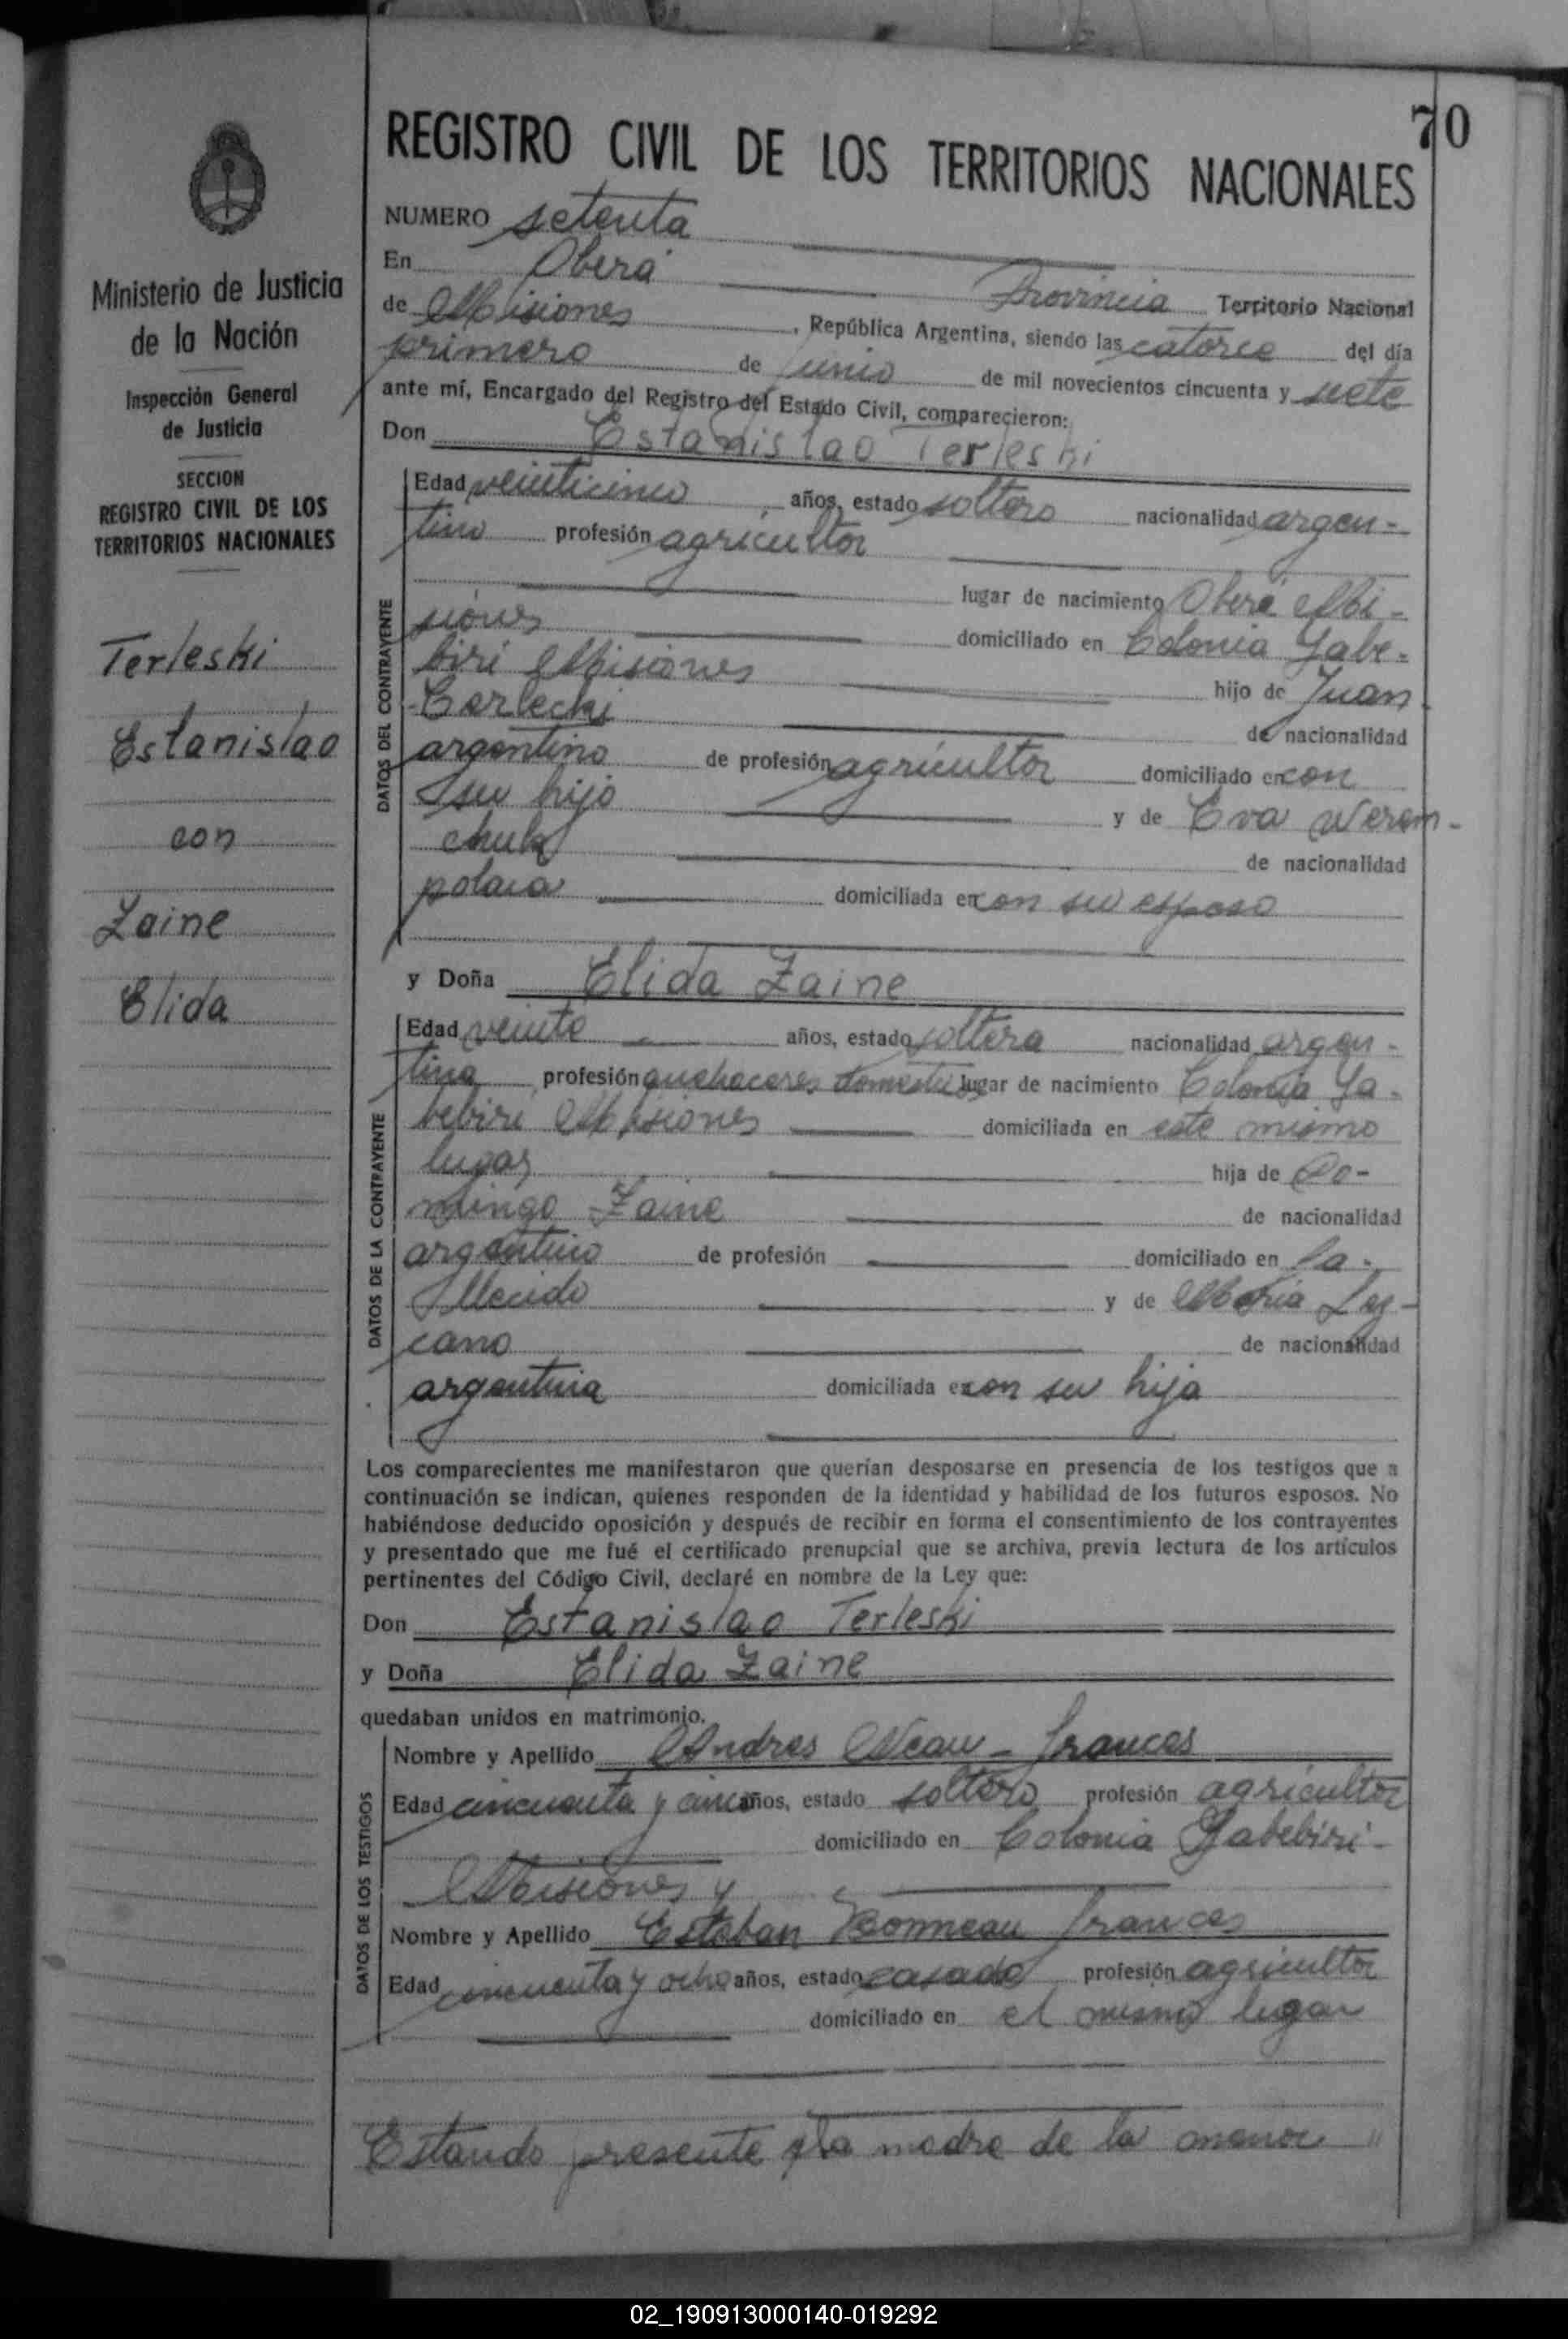 70
REGISTRO CIVIL DE LOS TERRITORIOS NACIONALES
NUMERO setenta
En Oberá Provincia Territorio Nacional
de Misiones, República Argentina, siendo las catorce del día
primero de junio de mil novecientos cincuenta y siete
ante mí, Encargado del Registro del Estado Civil, comparecieron:
Don Estanislao Terleski
Edad veinticinco años, estado soltero nacionalidad argen-
tino profesión agricultor
lugar de nacimiento Oberá Mi-
siones domiciliado en Colonia Yabe-
biri Misiones hijo de Juan
Cerlecki de nacionalidad
argentino de profesión agricultor domiciliado en con
su hijo y de Eva Werem-
chuk de nacionalidad
polaca domiciliada en con su esposo
y Doña Elida Zaine
Edad veinte años, estado soltera nacionalidad argen-
tina profesión quehaceres domesticos lugar de nacimiento Colonia Ya-
bebiri Misiones domiciliada en este mismo
lugar hija de Do-
mingo Zaine de nacionalidad
argentino de profesión domiciliado en fa-
llecido y de Maria Lez-
cano de nacionalidad
argentina domiciliada en con su hija
Los comparecientes me manifestaron que querían desposarse en presencia de los testigos que a
continuación se indican, quienes responden de la identidad y habilidad de los futuros esposos. No
habiéndose deducido oposición y después de recibir en forma el consentimiento de los contrayentes
y presentado que me fué el certificado prenupcial que se archiva, previa lectura de los artículos
pertinentes del Código Civil, declaré en nombre de la Ley que:
Don Estanislao Terleski
y Doña Elida Zaine
quedaban unidos en matrimonio.
Nombre y Apellido Andres Neau - frances
Edad cincuenta y cinco años, estado soltero profesión agricultor
domiciliado en Colonia Yabebiri-
Misiones y
Nombre y Apellido Esteban Bonneau frances
Edad cincuenta y ocho años, estado casado profesión agricultor
domiciliado en el mismo lugar
Estando presente la madre de la menor "
DATOS DEL CONTRAYENTE
DATOS DE LA CONTRAYENTE
DATOS DE LOS TESTIGOS
Ministerio de Justicia
de la Nación
Inspección General
de Justicia
SECCION
REGISTRO CIVIL DE LOS
TERRITORIOS NACIONALES
Terleski
Estanislao
con
Zaine
Elida
02_190913000140-019292